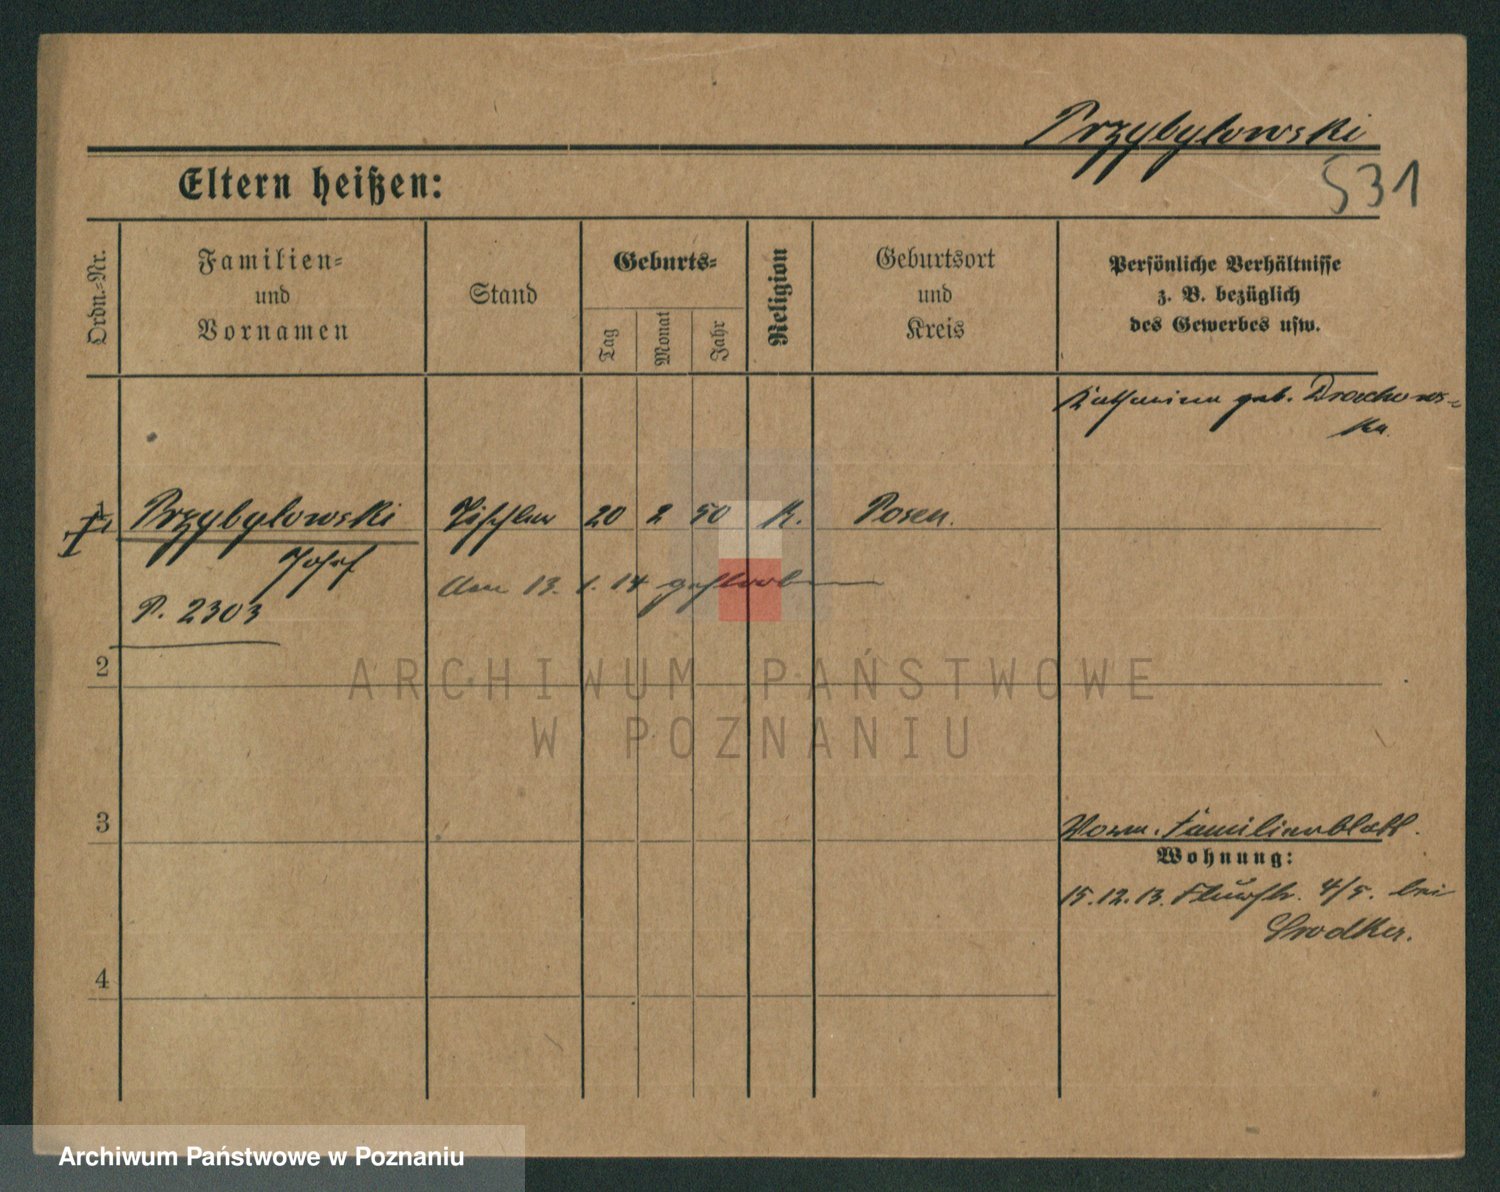 Przybylowski
531
Eltern heißen:
Ordn.-Nr.
Familien-
und
Vornamen
Stand
Geburts-
Tag
Monat
Jahr
Religion
Geburtsort
und
Kreis
Persönliche Verhältnisse
z. B. bezüglich
des Gewerbes usw.
Katharina geb.
1 Przybylowski Tischler 20 2 50 K. Posen.
Josef
am 13. 1. 14 gestorben
P. 2303
2
ARCHIWUM PAŃSTWOWE
W POZNANIU
3
Vorm. Familienblatt.
Wohnung:
15.12.13. 4/5. bei
4
Archiwum Państwowe w Poznaniu